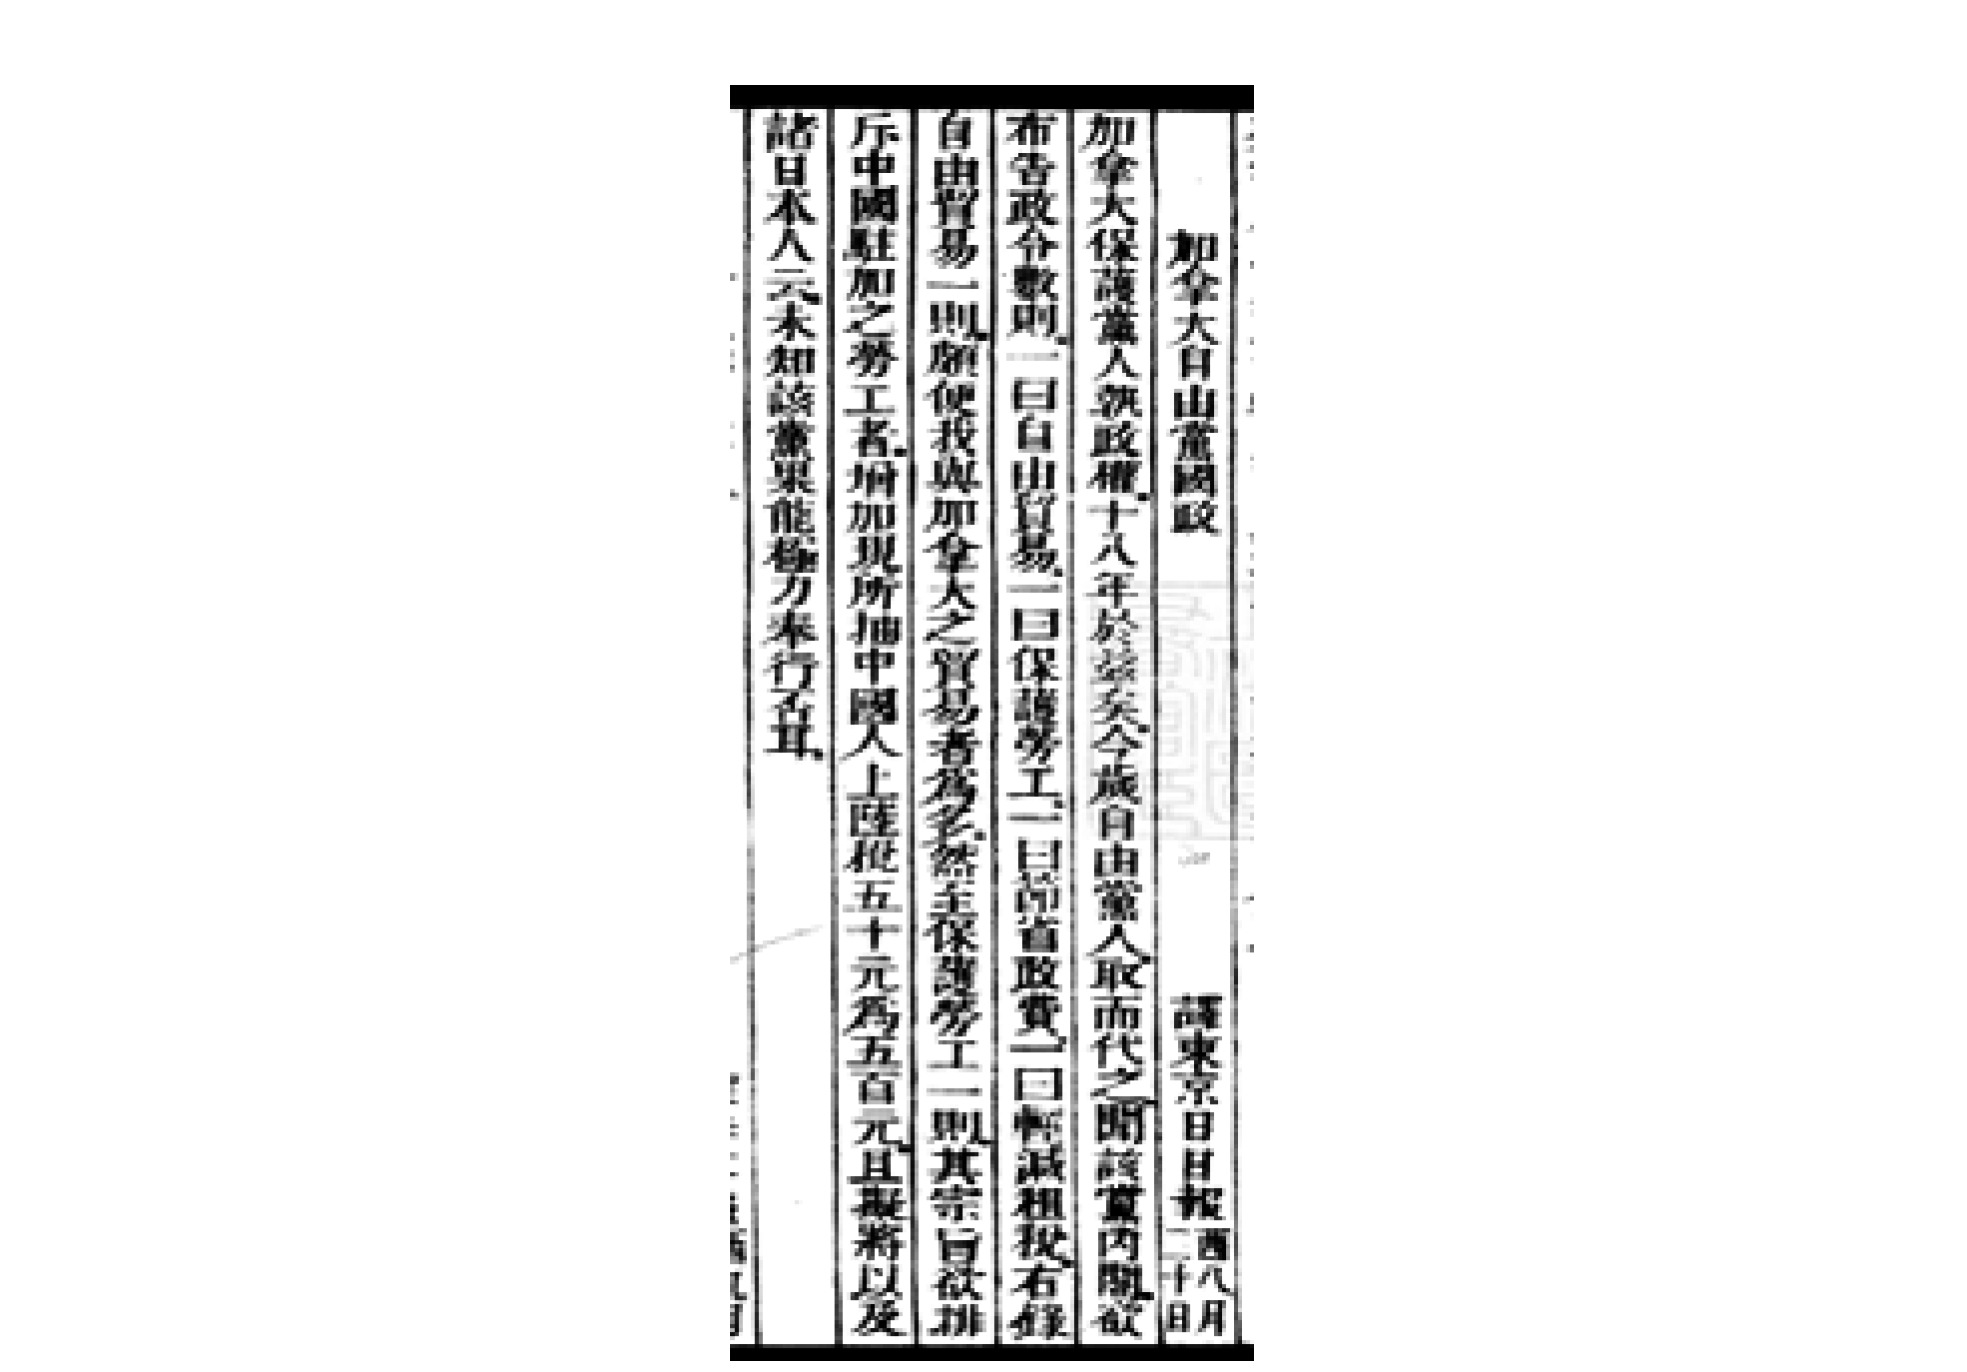 加拿大自由黨國政　譯東京日日報 西八月二十日
加拿大保護黨人執政權十八年於茲矣今歲自由黨人取而代之聞該黨內閣欲
布告政令數則一曰自由貿易一曰保護勞工一曰節省政費一曰輕減租稅右錄
自由貿易一則頗便我與加拿大之貿易者為多然至保護勞工一則其宗旨欲排
斥中國駐加之勞工者增加現所抽中國人上陸稅五十元為五百元且擬將以及
諸日本人云未知該黨果能極力奉行否耳